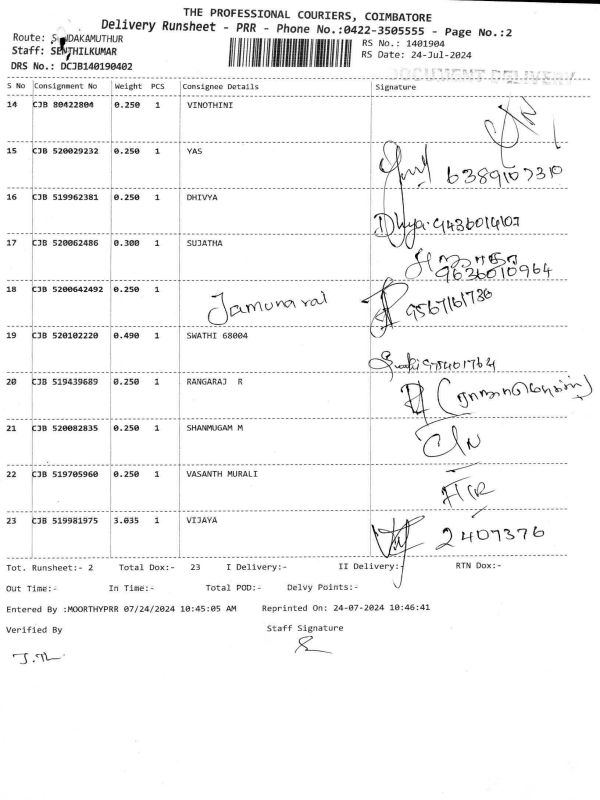 THE PROFESSIONAL COURIERS, COIMBATORE
Delivery Runsheet - PRR - Phone No.:0422-3505555 - Page No.:2
Route: S NDAKAMUTHUR
Staff: SENTHILKUMAR
DRS No.: DCJB140190402
RS No.: 1401904
RS Date: 24-Jul-2024
DOCUMENT DELIVERY
S No Consignment No Weight PCS Consignee Details Signature
14 CJB 80422804 0.250 1 VINOTHINI
15 CJB 520029232 0.250 1 YAS
16 CJB 519962381 0.250 1 DHIVYA
17 CJB 520062486 0.300 1 SUJATHA
9636010964
18 CJB 5200642492 0.250 1 Jamuna rai 9567161736
19 CJB 520102220 0.490 1 SWATHI 68004
20 CJB 519439689 0.250 1 RANGARAJ R
21 CJB 520082835 0.250 1 SHANMUGAM M
22 CJB 519705960 0.250 1 VASANTH MURALI
23 CJB 519981975 3.035 1 VIJAYA 2407376
Tot. Runsheet:- 2 Total Dox:- 23 I Delivery:- II Delivery:- RTN Dox:-
Out Time:- In Time:- Total POD:- Delvy Points:-
Entered By :MOORTHYPRR 07/24/2024 10:45:05 AM Reprinted On: 24-07-2024 10:46:41
Verified By Staff Signature